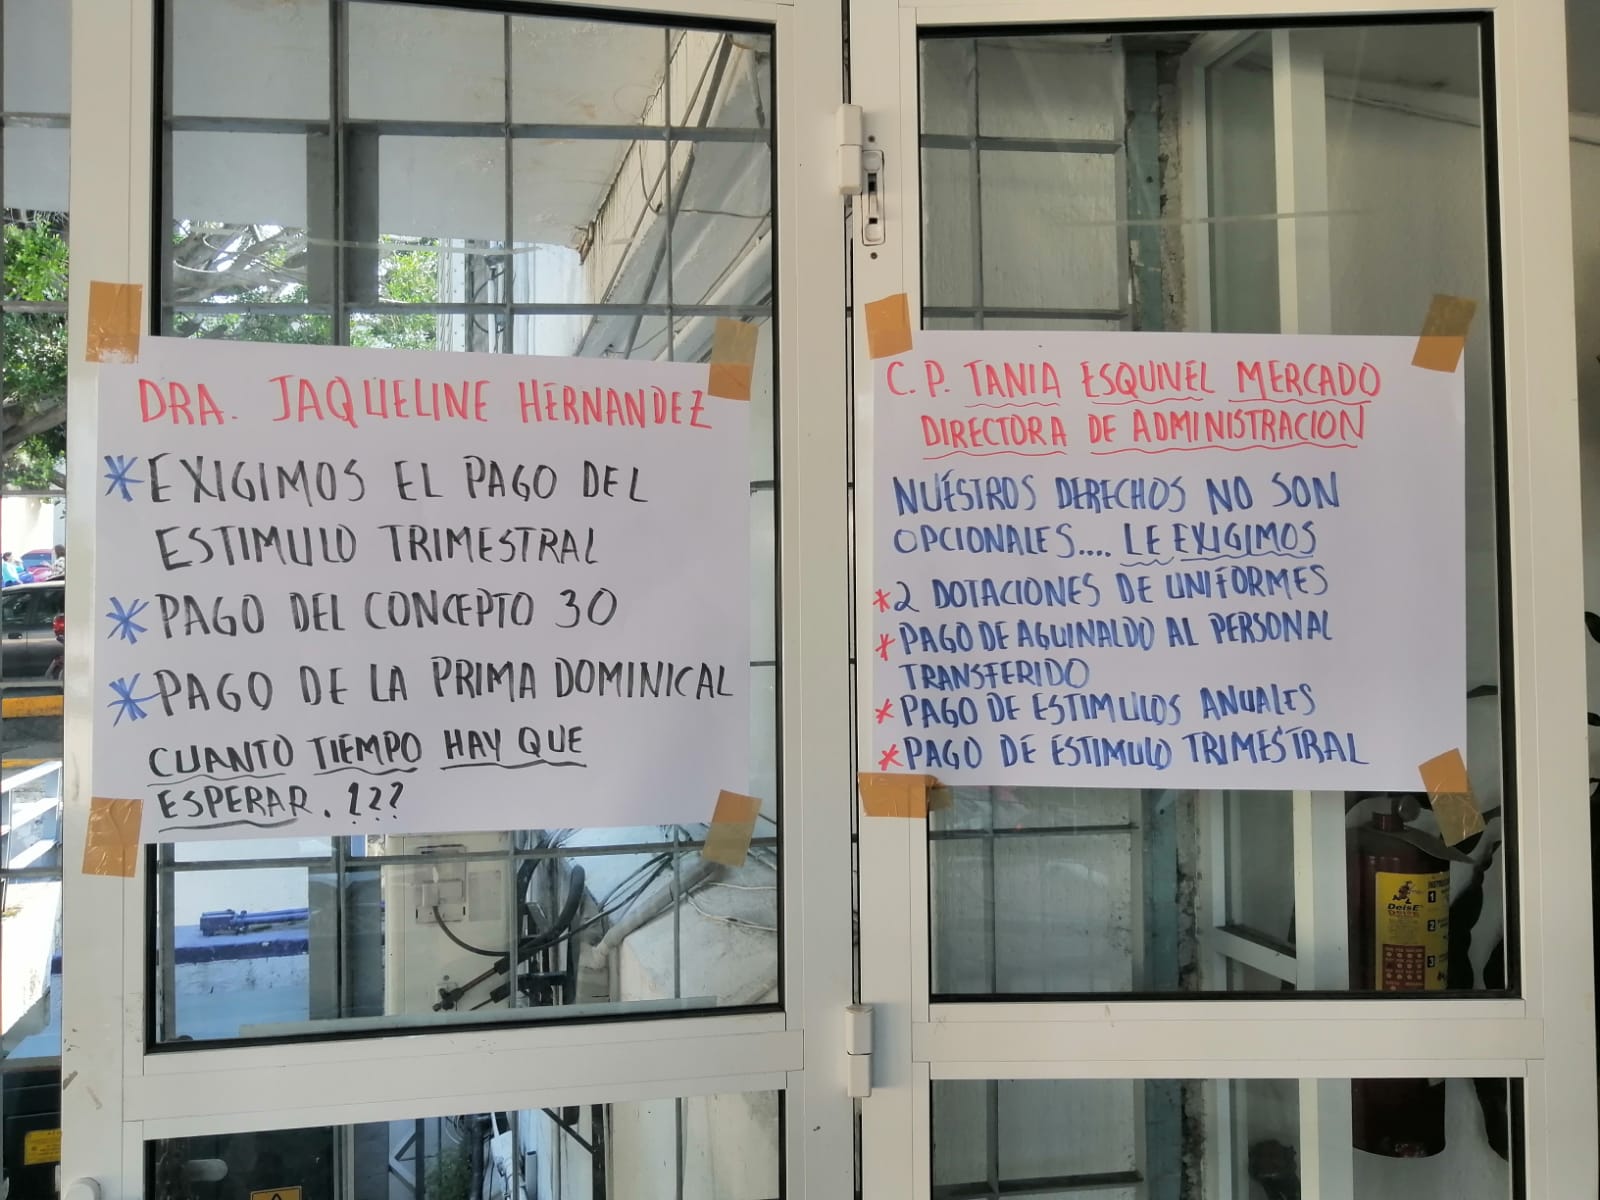 DRA. JAQUELINE HERNANDEZ
*EXIGIMOS EL PAGO DEL
ESTIMULO TRIMESTRAL
*PAGO DEL CONCEPTO 30
*PAGO DE LA PRIMA DOMINICAL
CUANTO TIEMPO HAY QUE
ESPERAR. ???
C. P. TANIA ESQUIVEL MERCADO
DIRECTORA DE ADMINISTRACION
NUESTROS DERECHOS NO SON
OPCIONALES.... LE EXIGIMOS
*2 DOTACIONES DE UNIFORMES
*PAGO DE AGUINALDO AL PERSONAL
TRANSFERIDO
*PAGO DE ESTIMULOS ANUALES
*PAGO DE ESTIMULO TRIMESTRAL
DeisE
1
2
3